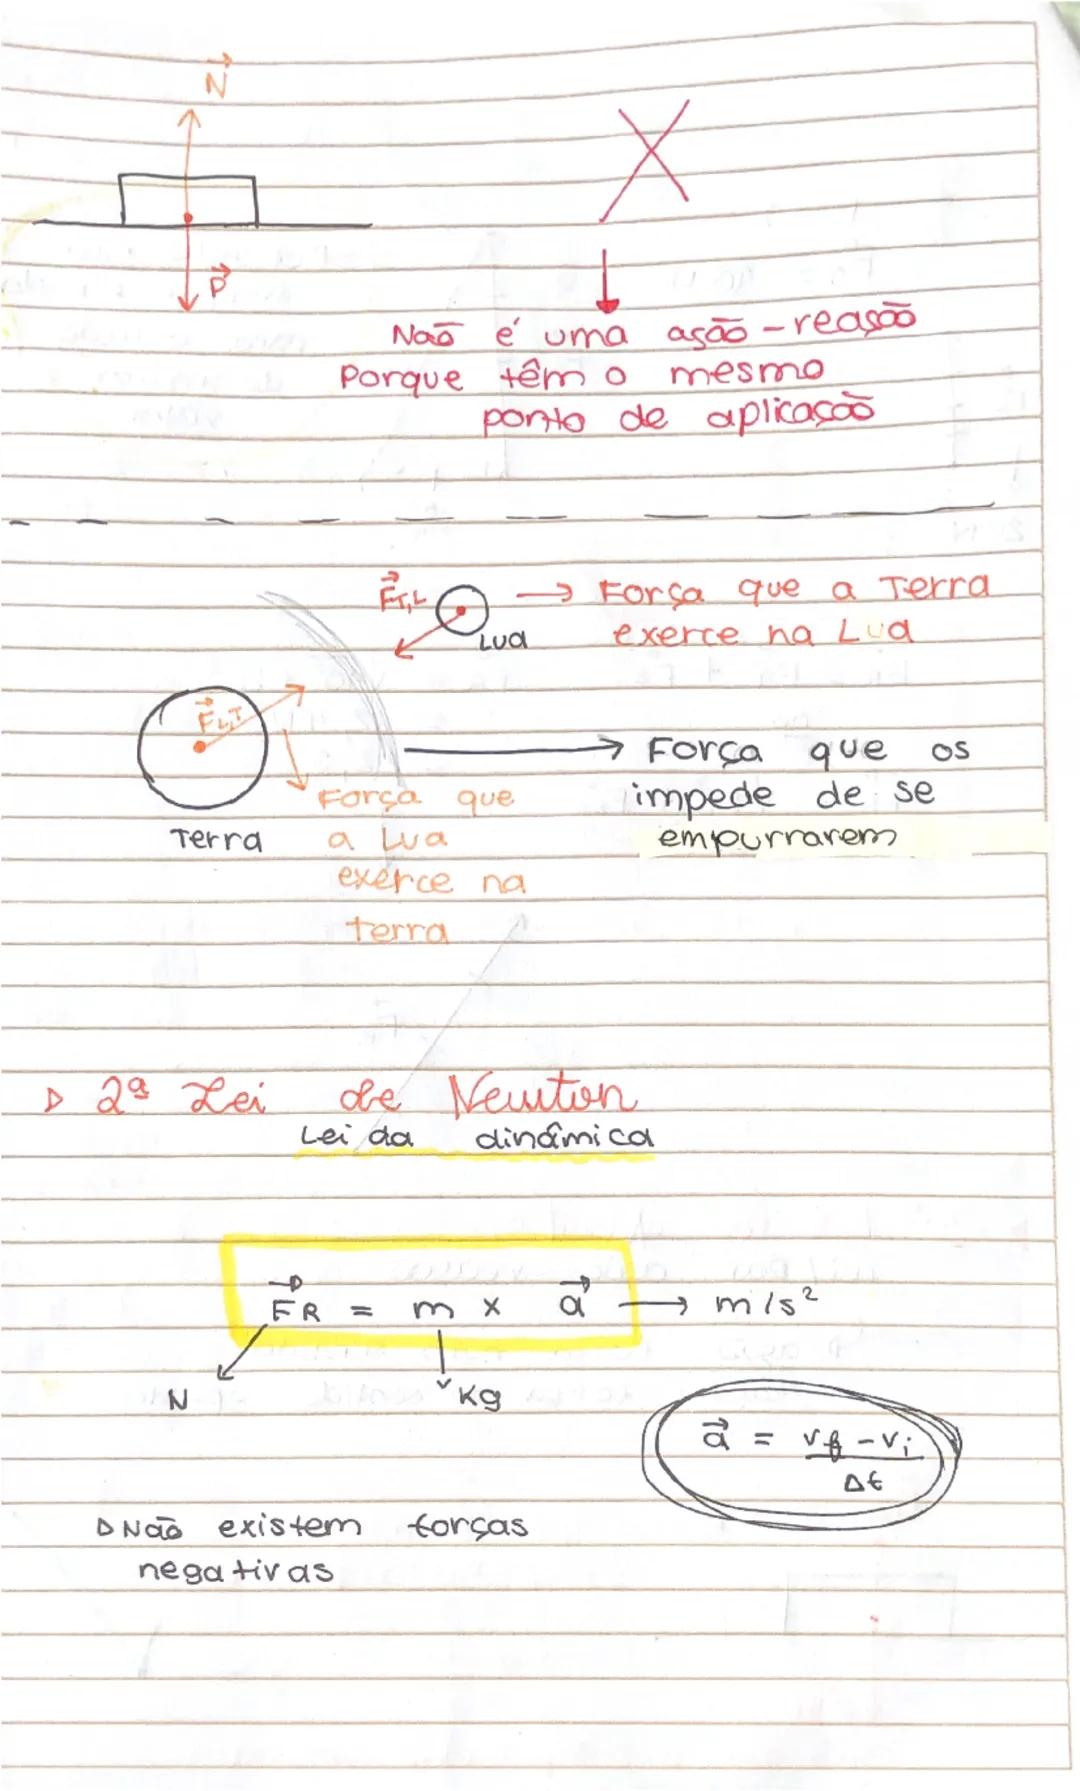 N
P
Não é uma ação-reação
Porque têm o mesmo
ponto de aplicação
FT,L
Lua
→ Força que a Terra
exerce na Lua
FL,T
Terra
Força que
a Lua
exerce na
terra
→ Força que os
impede de se
empurrarem
▷ 2ª Lei de Newton
Lei da dinâmica
FR = m x a → m/s²
N
Kg
a = vf - vi
Δt
▷ Não existem forças
negativas